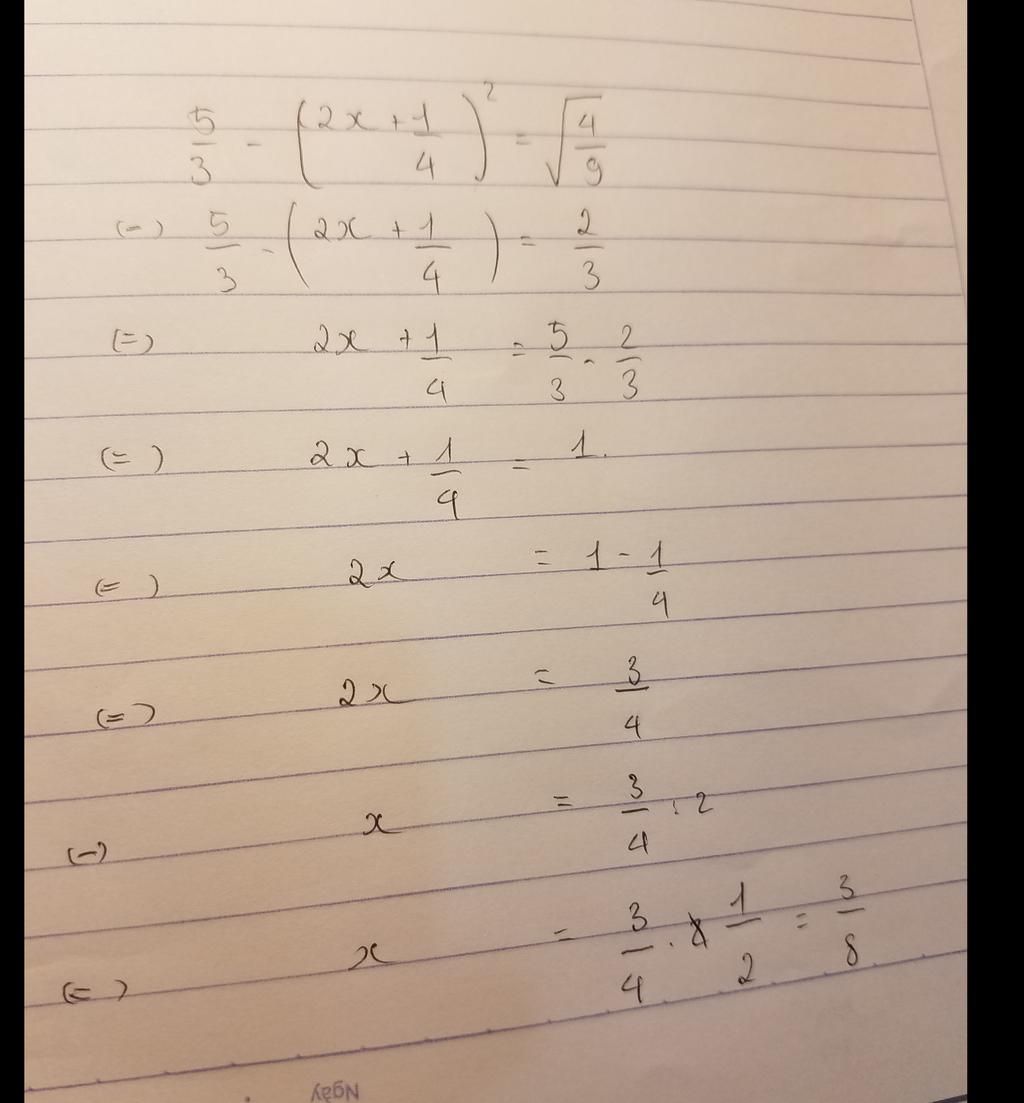 5/3 - (2x + 1/4)² = √(4/9)
(=) 5/3 - (2x + 1/4) = 2/3
(=) 2x + 1/4 = 5/3 - 2/3
(=) 2x + 1/4 = 1.
(=) 2x = 1 - 1/4
(=) 2x = 3/4
(=) x = 3/4 : 2
(=) x = 3/4 . 1/2 = 3/8
Ngày